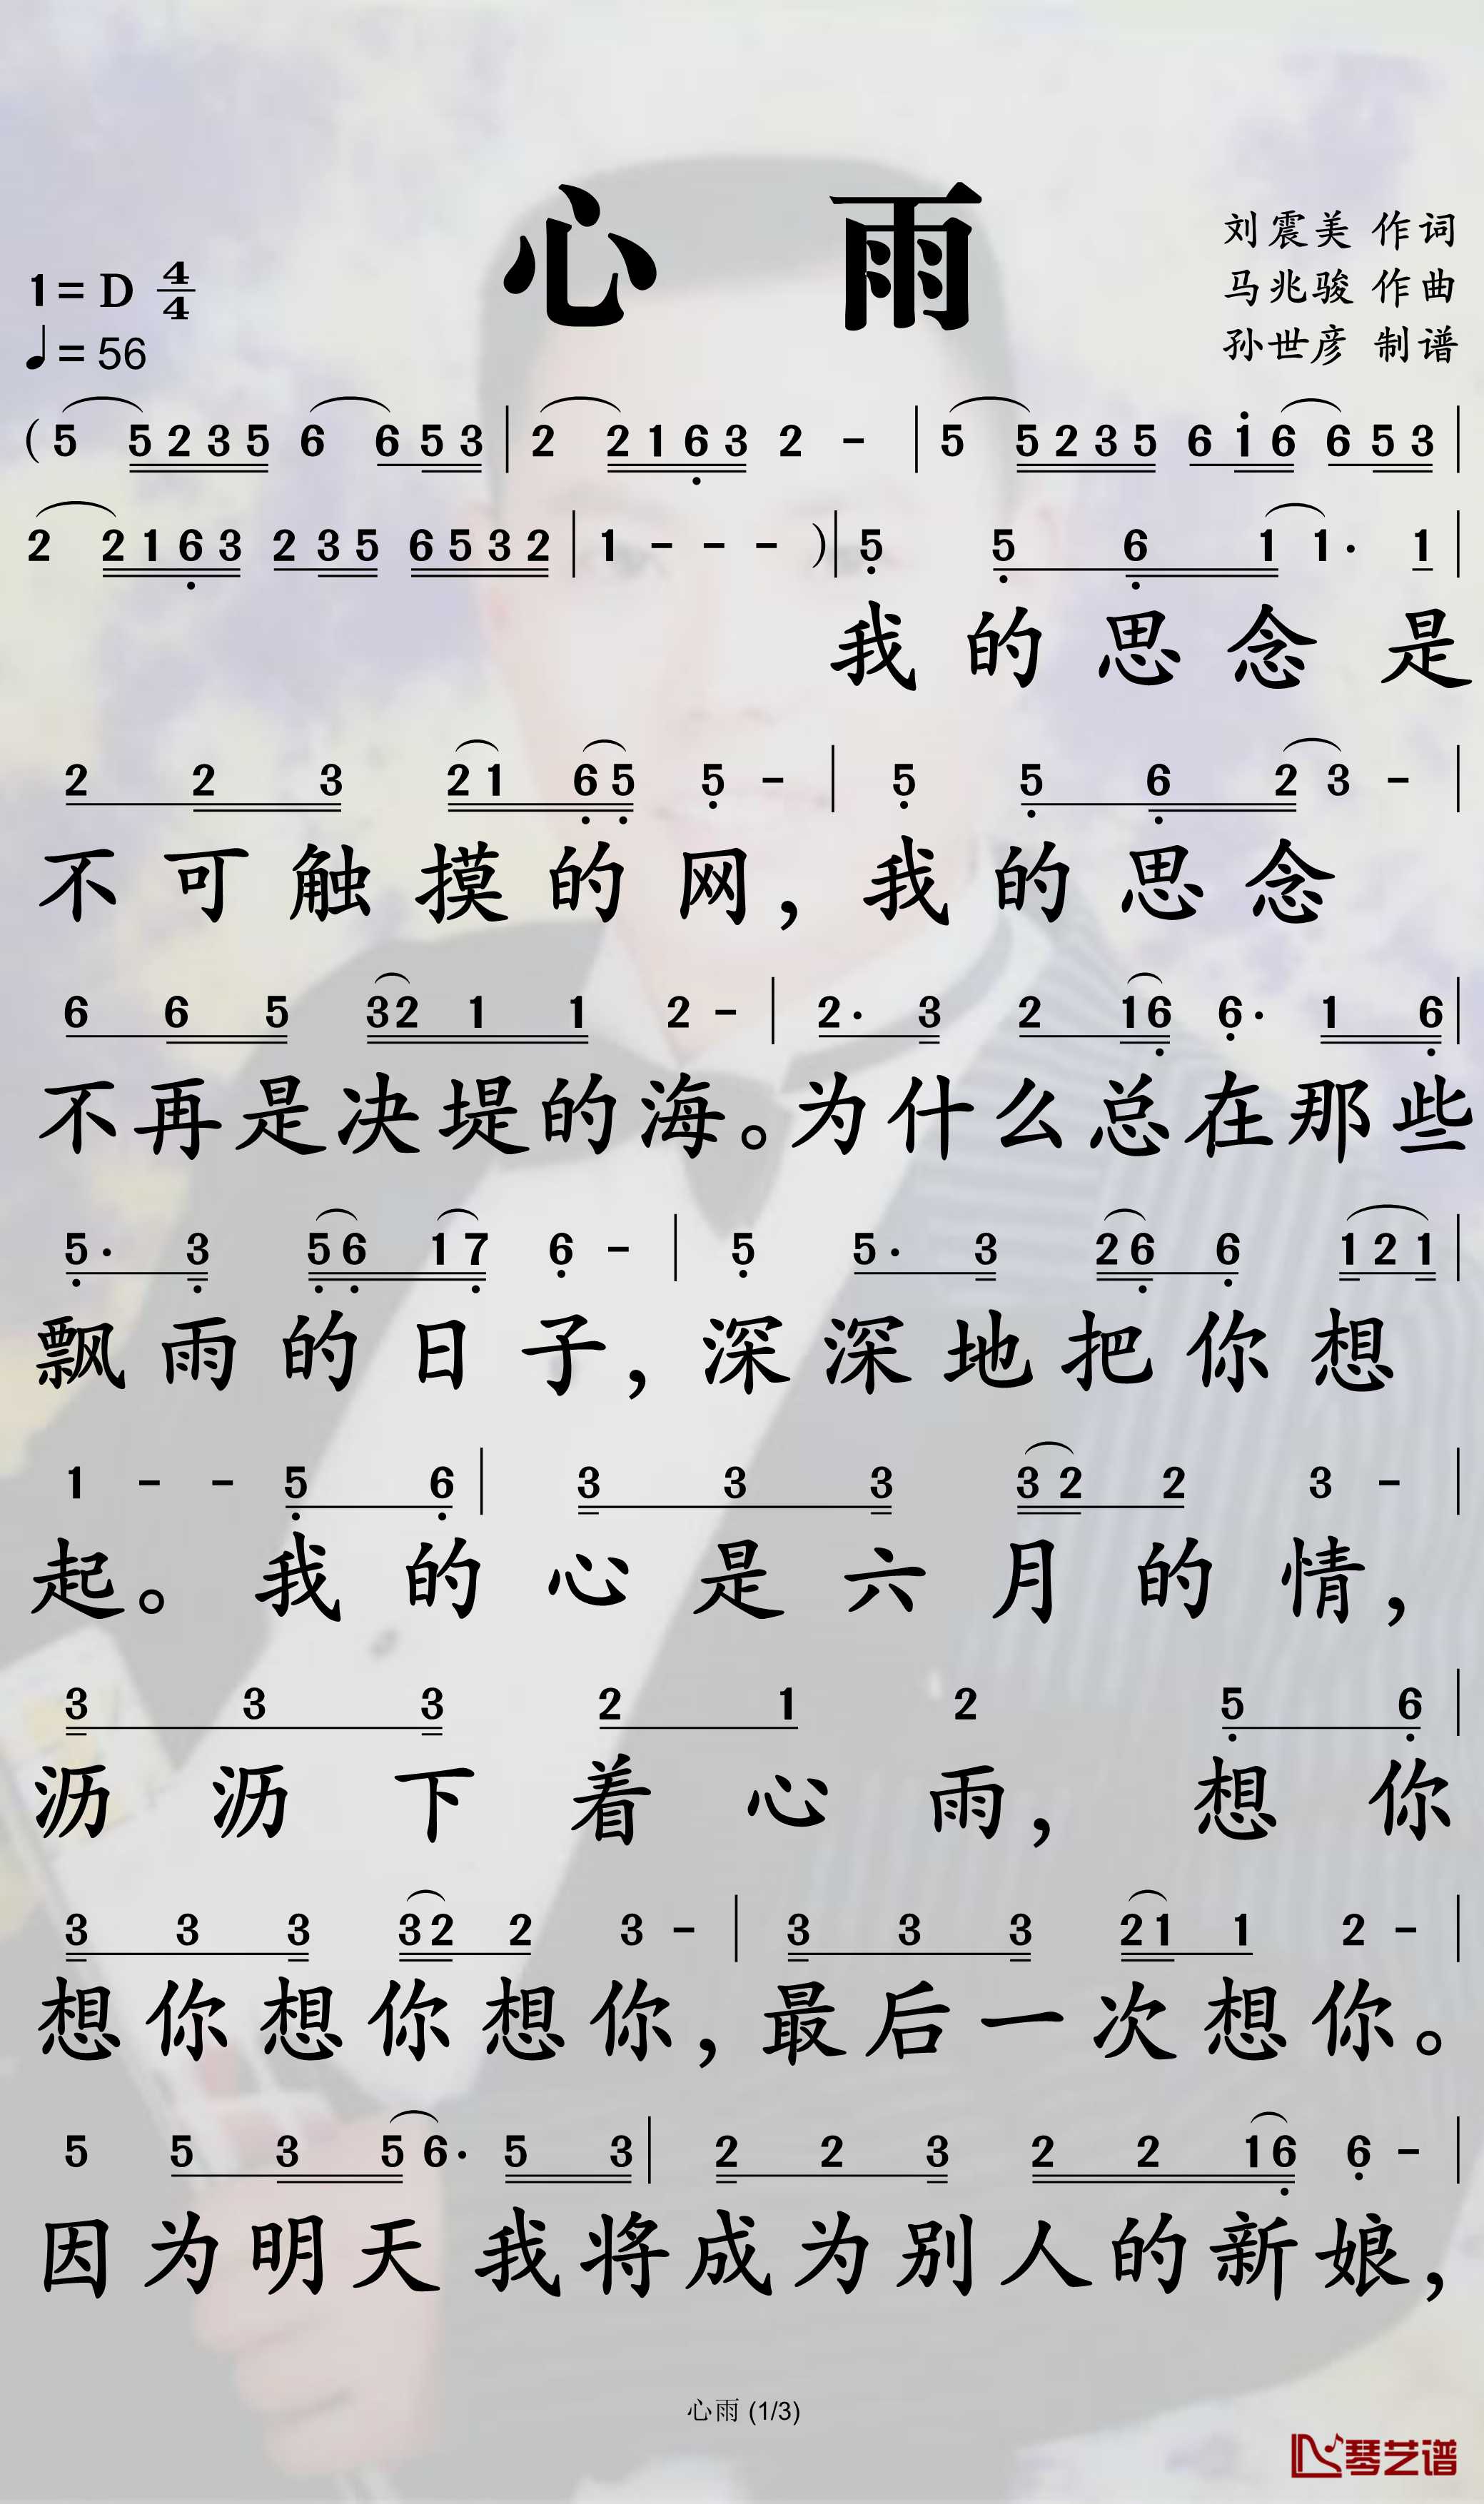 心 雨
刘震美 作词
马兆骏 作曲
孙世彦 制谱
1= D 4/4
♩= 56
( 5 5 2 3 5 6 6 5 3 | 2 2 1 6 3 2 - | 5 5 2 3 5 6 1 6 6 5 3 |
2 2 1 6 3 2 3 5 6 5 3 2 | 1 - - - ) | 5 5 6 1 1. 1 |
我 的 思 念 是
2 2 3 2 1 6 5 5 - | 5 5 6 2 3 - |
不 可 触 摸 的 网 , 我 的 思 念
6 6 5 3 2 1 1 2 - | 2. 3 2 1 6 6. 1 6 |
不 再 是 决 堤 的 海 。 为 什 么 总 在 那 些
5. 3 5 6 1 7 6 - | 5 5. 3 2 6 6 1 2 1 |
飘 雨 的 日 子 , 深 深 地 把 你 想
1 - - 5 6 | 3 3 3 3 2 2 3 - |
起 。 我 的 心 是 六 月 的 情 ,
3 3 3 2 1 2 5 6 |
沥 沥 下 着 心 雨 , 想 你
3 3 3 3 2 2 3 - | 3 3 3 2 1 1 2 - |
想 你 想 你 想 你 , 最 后 一 次 想 你 。
5 5 3 5 6. 5 3 | 2 2 3 2 2 1 6 6 - |
因 为 明 天 我 将 成 为 别 人 的 新 娘 ,
心雨 (1/3)
琴艺谱